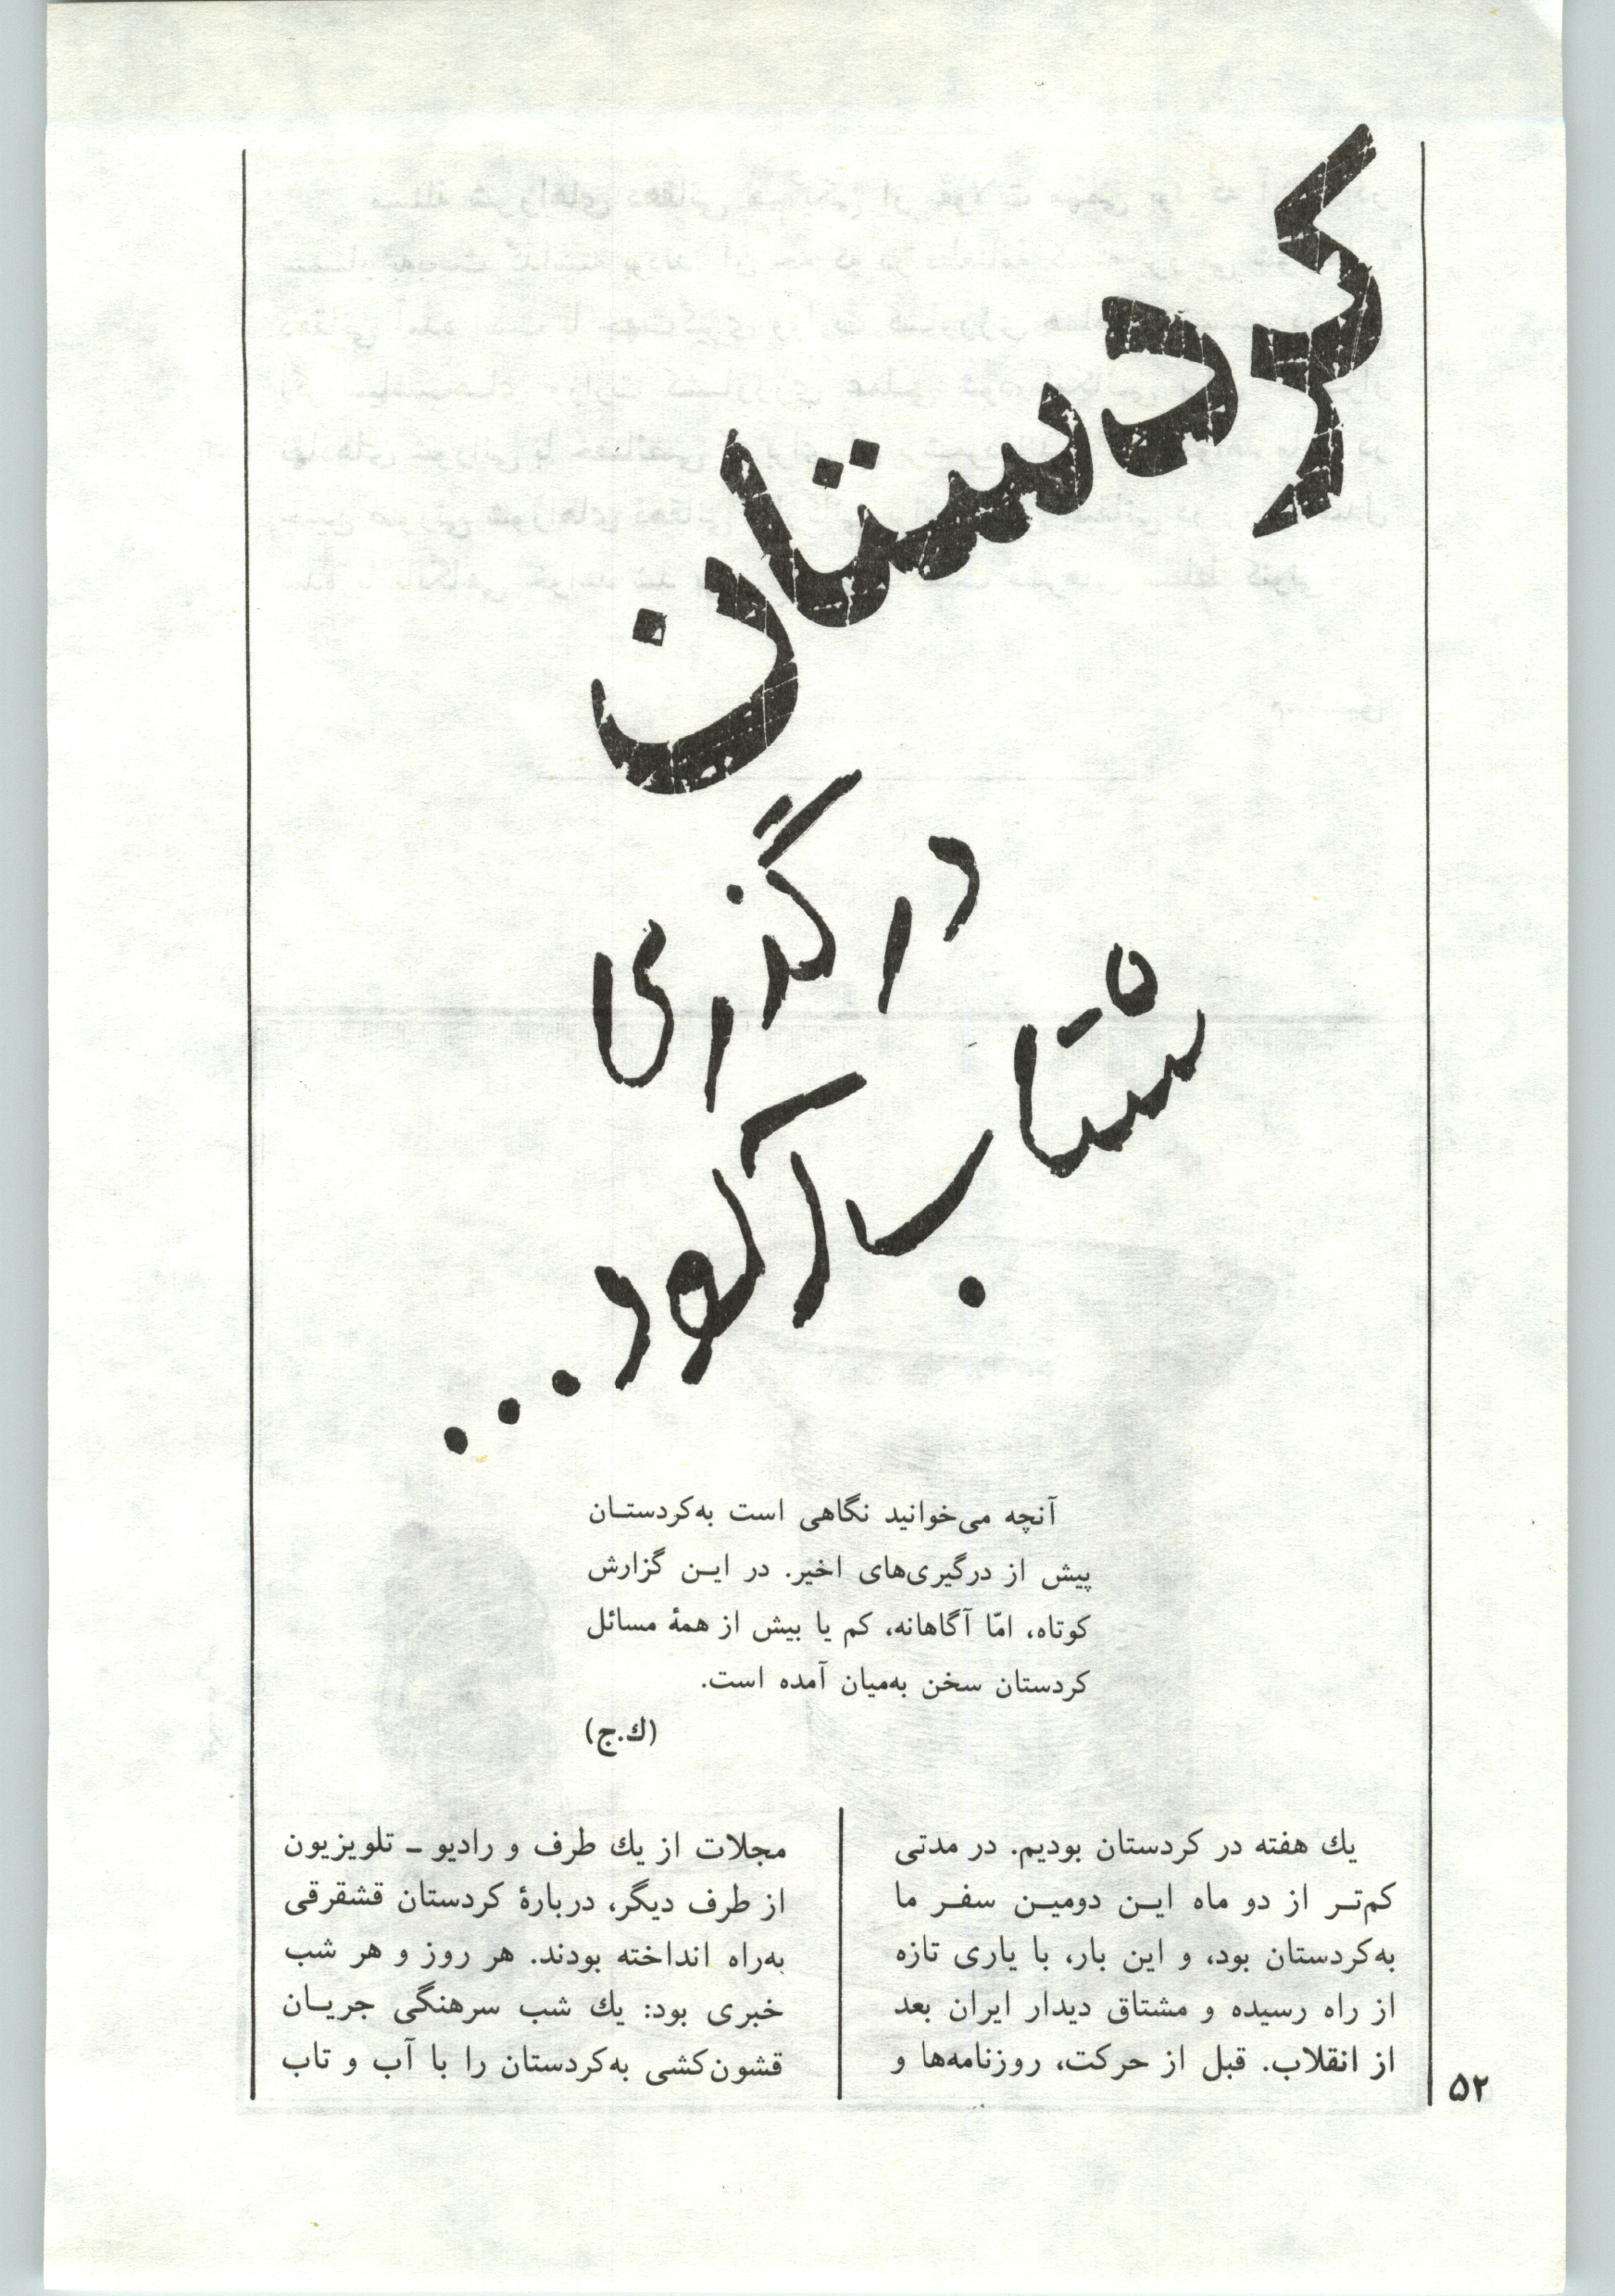 کردستان
در گذری
شتاب‌آلود...
آنچه می‌خوانید نگاهی است به‌کردستـان
پیش از درگیری‌های اخیر. در ایـن گزارش
کوتاه، امّا آگاهانه، کم یا بیش از همهٔ مسائل
کردستان سخن به‌میان آمده است.
(ك.ج)
یك هفته در کردستان بودیم. در مدتی
کم‌تـر از دو ماه ایـن دومیـن سفـر ما
به‌کردستان بود، و این بار، با یاری تازه
از راه رسیده و مشتاق دیدار ایران بعد
از انقلاب. قبل از حرکت، روزنامه‌ها و
مجلات از یك طرف و رادیو ـ تلویزیون
از طرف دیگر، دربارهٔ کردستان قشقرقی
به‌راه انداخته بودند. هر روز و هر شب
خبری بود: یك شب سرهنگی جریـان
قشون‌کشی به‌کردستان را با آب و تاب
۵۲